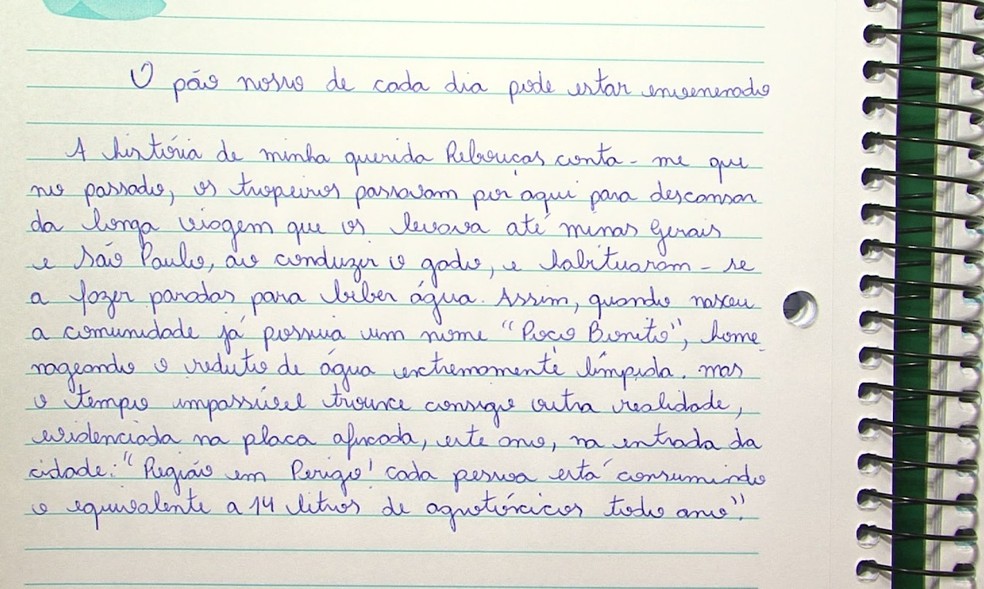 O pão nosso de cada dia pode estar envenenado
A história de minha querida Rebouças conta-me que
no passado, os tropeiros passavam por aqui para descansar
da longa viagem que os levava até minas gerais
e São Paulo, ao conduzir o gado, e habituaram-se
a fazer paradas para beber água. Assim, quando nasceu
a comunidade já possuia um nome "Poço Bonito", home
nageando o reduto de água extremamente límpida. mas
o tempo impassível trouxe consigo outra realidade,
evidenciada na placa afixada, este ano, na entrada da
cidade: "Região em Perigo! cada pessoa está consumindo
o equivalente a 14 litros de agrotóxicos todo ano".